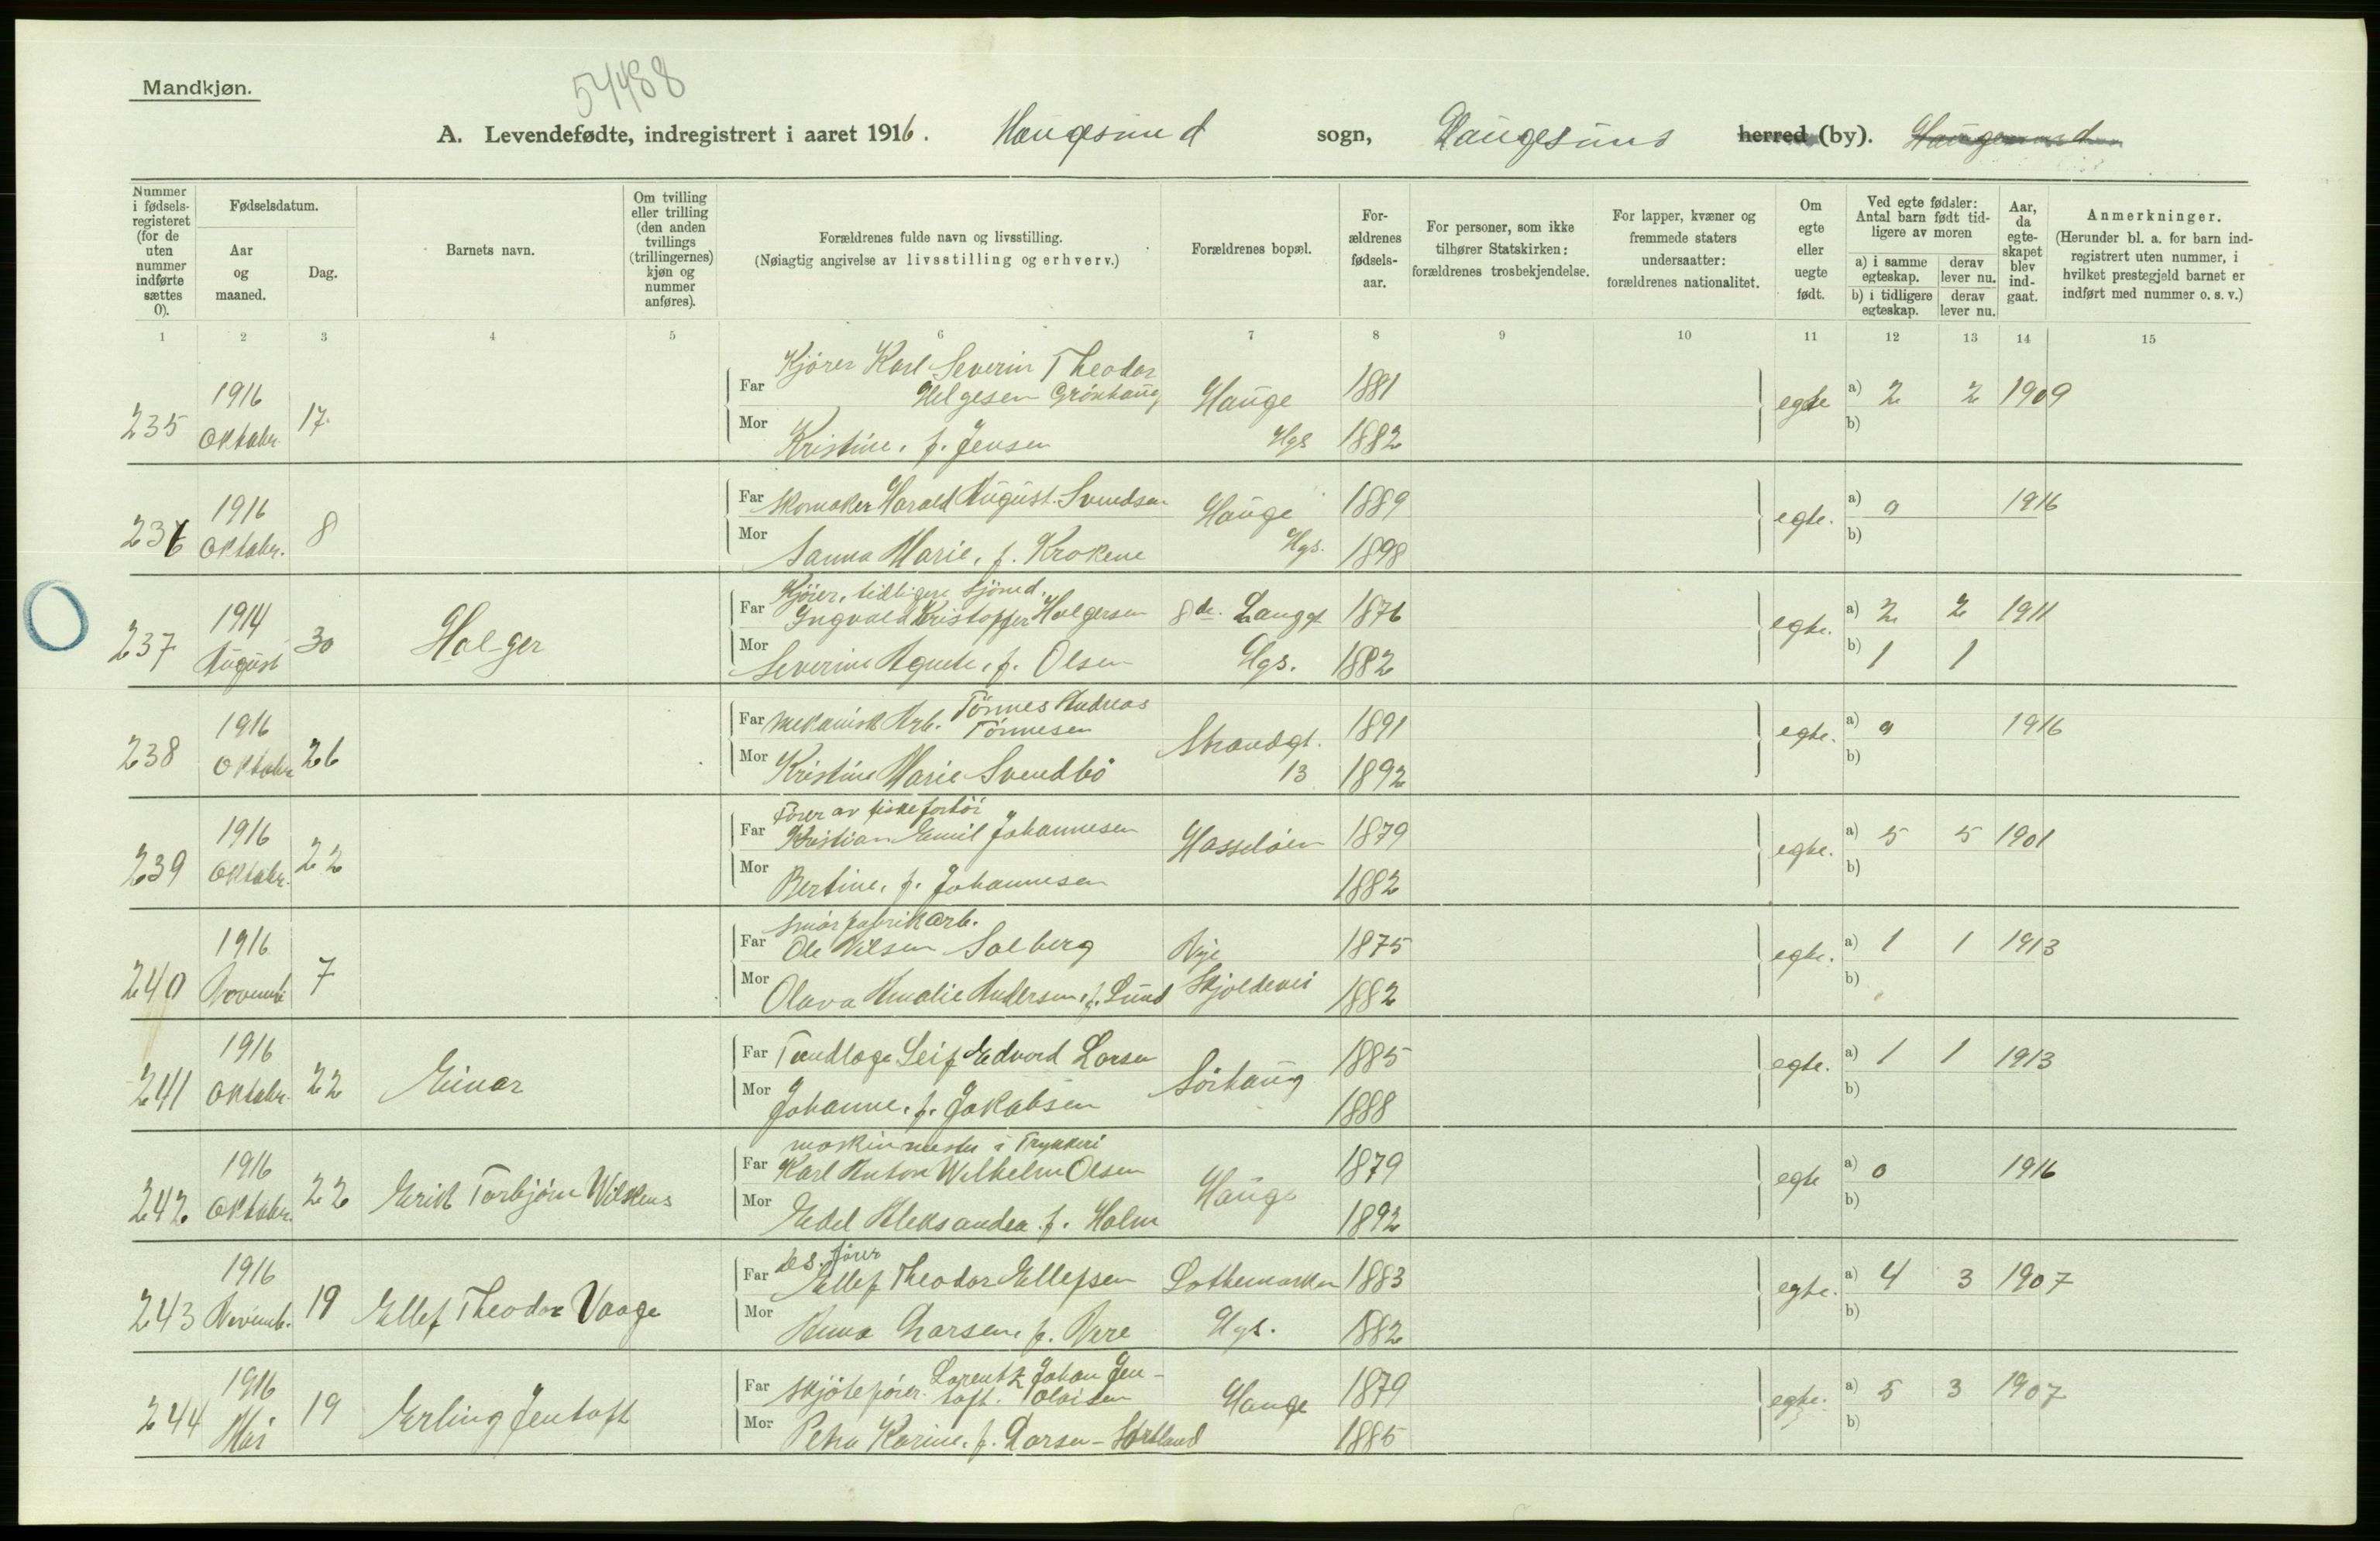 Mandkjøn.
54488
A. Levendefødte, indregistrert i aaret 1916. Haugesund sogn, Haugesund herred (by). Haugesund
Nummer i fødselsregisteret (for de uten nummer indførte sættes 0).
Fødselsdatum.
Aar og maaned.
Dag.
Barnets navn.
Om tvilling eller trilling (den anden tvillings (trillingernes) kjøn og nummer anføres).
Forældrenes fulde navn og livsstilling.
(Nøiagtig angivelse av livsstilling og erhverv.)
Forældrenes bopæl.
Forældrenes fødselsaar.
For personer, som ikke tilhører Statskirken: forældrenes trosbekjendelse.
For lapper, kvæner og fremmede staters undersaatter: forældrenes nationalitet.
Om egte eller uegte født.
Ved egte fødsler: Antal barn født tidligere av moren
a) i samme egteskap. derav lever nu.
b) i tidligere egteskap. derav lever nu.
Aar, da egteskapet blev indgaat.
Anmerkninger.
(Herunder bl. a. for barn indregistrert uten nummer, i hvilket prestegjeld barnet er indført med nummer o. s. v.)
1 2 3 4 5 6 7 8 9 10 11 12 13 14 15
235 1916 Oktober. 17.
Far Kjörer Karl Severin Theodor
Helgesen Grönhaug Hauge 1881 egte a) 2 2 1909
Mor Kristine, f. Jensen Hgs 1882 b)
236 1916 Oktober. 8
Far Skomaker Harald August Svendsen Hauge 1889 egte. a) 0 1916
Mor Sanna Marie, f. Krokene Hgs. 1898 b)
237 1914 August 30 Holger
Kjörer, tidligere Sjömd.
Far Ingvald Kristoffer Holgersen 8de. Langgt 1876 egte. a) 2 2 1911
Mor Severine Agnete, f. Olsen Hgs. 1882 b) 1 1
238 1916 Oktober 26
Far mekanisk Arb. Tönnes Andreas
Tönnesen Strandgt. 1891 egte. a) 0 1916
Mor Kristine Marie Svendbö 13 1892 b)
239 1916 Oktober. 22
Förer av fiskefortöi
Far Kristian Emil Johannesen Hasselöen 1879 egte. a) 5 5 1901
Mor Bertine, f. Johannesen 1882 b)
240 1916 Novemb 7
Smörfabrikarb.
Far Ole Nilsen Solberg Nye 1875 egte. a) 1 1 1913
Mor Olava Amalie Andersen, f. Lund Skjoldevei 1882 b)
241 1916 Oktober. 22 Einar
Far Tandlæge Leif Edvard Larsen Sörhaug 1885 egte. a) 1 1 1913
Mor Johanne, f. Jakobsen 1888 b)
242 1916 Oktober. 22 Erik Torbjörn Wilskens
maskinmester i Trykkeri
Far Karl Anton Wilhelm Olsen Hauge 1879 egte a) 0 1916
Mor Edel Aleksandra f. Holm 1892 b)
243 1916 Novemb. 19 Ellef Theodor Vaage
förer
Far Ellef Theodor Ellefsen Lothemarken 1883 egte. a) 4 3 1907
Mor Anna Larsen, f. Hgs. 1882 b)
244 1916 Mai 19 Erling Jentoft
Far Skjöteförer Lorentz Johan Jen-
toft. Olaisen Hauge 1879 egte. a) 5 3 1907
Mor Petra Karine, f. Larsen - Sortland 1885 b)